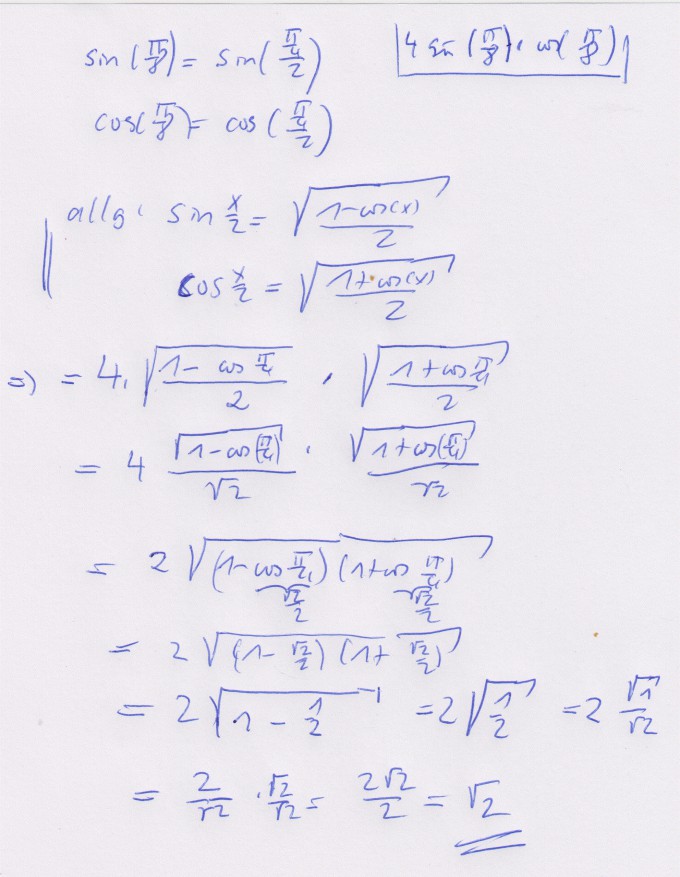 sin(π/8) = sin((π/4)/2) 4 sin(π/8) · cos(π/8)
cos(π/8) = cos((π/4)/2)
allg: sin x/2 = √((1-cos(x))/2)
cos x/2 = √((1+cos(x))/2)
=> = 4 · √((1 - cos π/4)/2) · √((1+cos π/4)/2)
= 4 √(1-cos(π/4))/√2 · √(1+cos(π/4))/√2
= 2 √((1-cos π/4)(1+cos π/4))
√2/2 √2/2
= 2 √((1-√2/2)(1+√2/2))
= 2 √(1 - 1/2) = 2 √(1/2) = 2 √1/√2
= 2/√2 · √2/√2 = 2√2/2 = √2